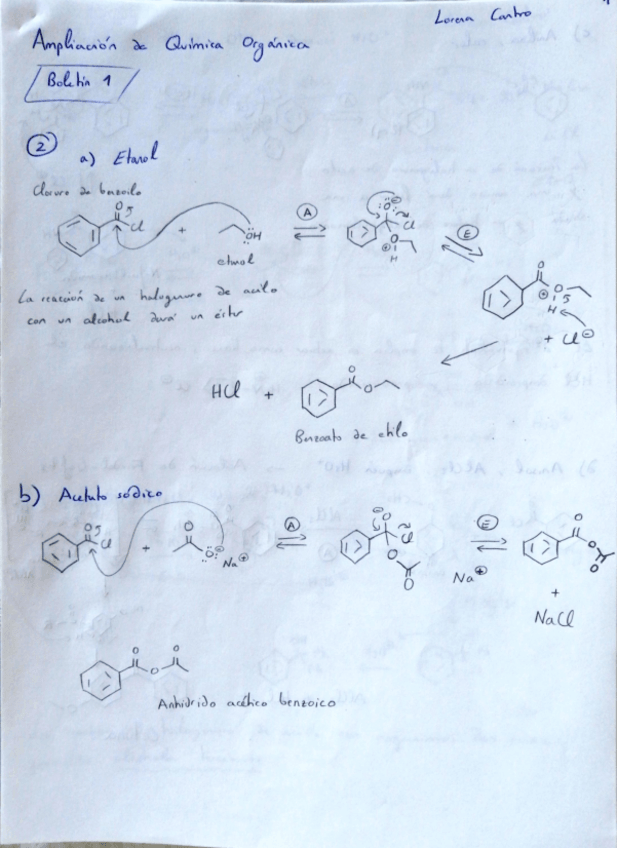 Lorena Castro
Ampliación de Química Orgánica
Boletín 1
2
a) Etanol
Cloruro de benzoilo
O
Cl
+
OH
etanol
A
O
Cl
O
H
E
O
O
H
+ Cl
La reacción de un halogenuro de acilo
con un alcohol dará un éster
HCl +
O
O
Benzoato de etilo
b) Acetato sódico
O
Cl
+
O
O
Na
A
O
Cl
O
O
Na
E
O
O
O
+
NaCl
O
O
O
Anhídrido acético benzoico